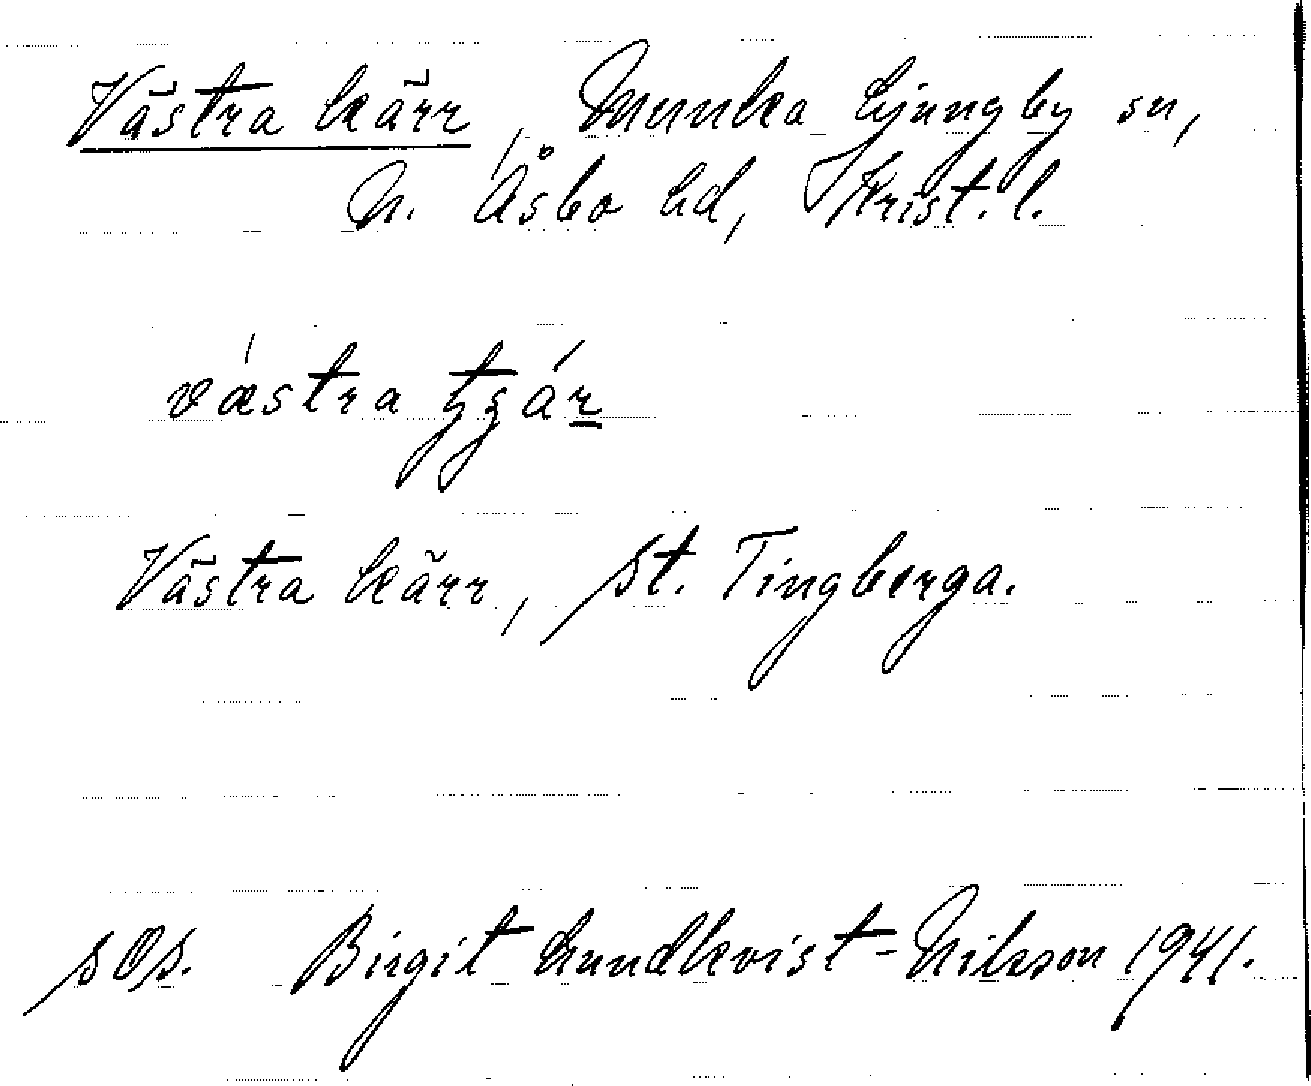 Västra kärr, Munka Ljungby sn,
N. Åsbo hd, Krist. l.
Västra kärr, St. Tingberga.
sOs. Birgit Lundkvist-Nilsson 1941.